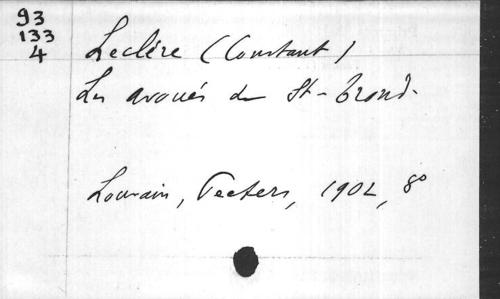 93
133
4
Leclère (Constant)
Les avoués de St-Trond.
Louvain, Peeters, 1902, 8°